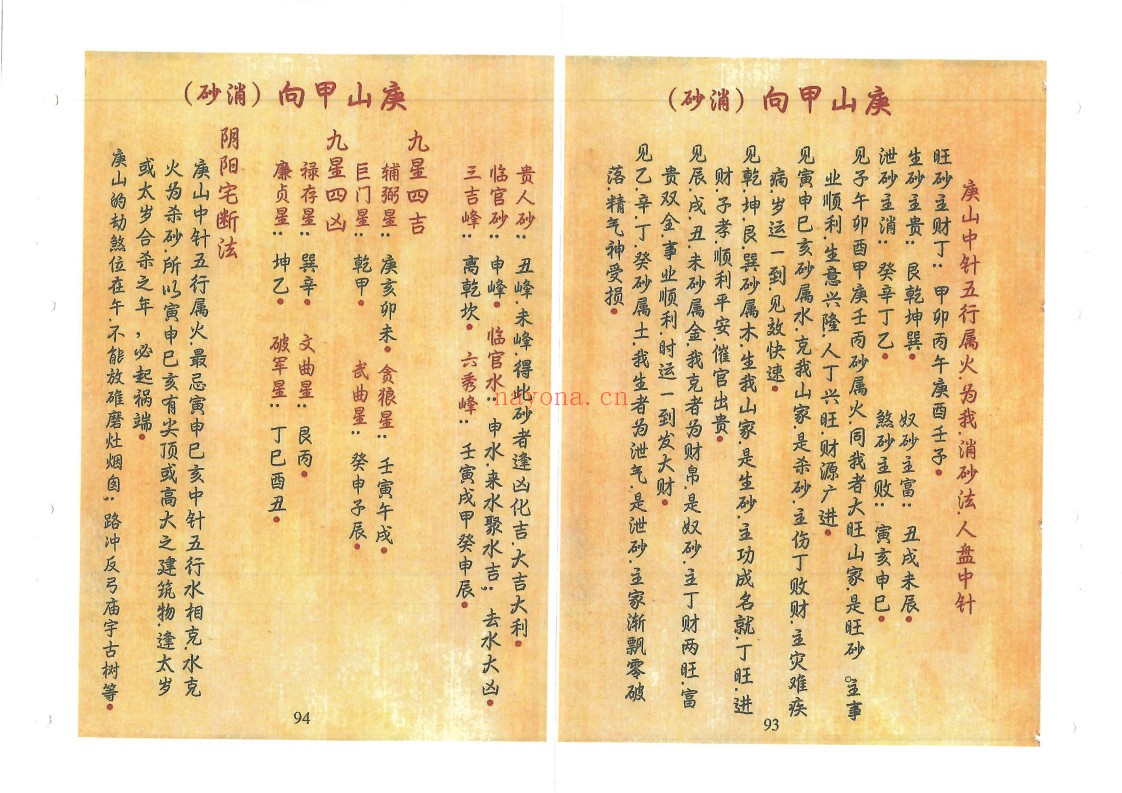 庚山甲向（消砂）
庚山中针五行属火.为我.消砂法.人盘中针
旺砂主财丁：甲卯丙午庚酉壬子。
生砂主贵：艮乾坤巽。 奴砂主富：丑戌未辰。
泄砂主消：癸辛丁乙。 煞砂主败：寅亥申巳。
见子午卯酉甲庚壬丙砂属火.同我者大旺山家.是旺砂。主事
业顺利.生意兴隆.人丁兴旺.财源广进.
见寅申巳亥砂属水.克我山家.是杀砂.主伤丁败财.主灾难疾
病.岁运一到.见效快速。
见乾.坤.艮.巽砂属木.生我山家.是生砂.主功成名就.丁旺.进
财子孝.顺利平安.催官出贵。
见辰.戌.丑.未砂属金.我克者为财帛.是奴砂.主丁财两旺.富
贵双全.事业顺利.时运一到发大财.
见乙.辛.丁.癸砂属土.我生者为泄气.是泄砂.主家渐飘零破
落.精气神受损。
93
庚山甲向（消砂）
贵人砂：丑峰.未峰.得此砂者逢凶化吉.大吉大利。
临官砂：申峰。临官水：申水.来水聚水吉；去水大凶。
三吉峰：离乾坎。六秀峰：壬寅戌甲癸申辰。
九星四吉
辅弼星：庚亥卯未。贪狼星：壬寅午戌。
巨门星：乾甲。 武曲星：癸申子辰。
九星四凶
禄存星：巽辛。 文曲星：艮丙。
廉贞星：坤乙。 破军星：丁巳酉丑。
阴阳宅断法
庚山中针五行属火.最忌寅申巳亥中针五行水相克.水克
火为杀砂.所以寅申巳亥有尖顶或高大之建筑物.逢太岁
或太岁合杀之年，必起祸端。
庚山的劫煞位在午.不能放碓磨灶烟囱；路冲反弓庙宇古树等。
94
nayona.cn